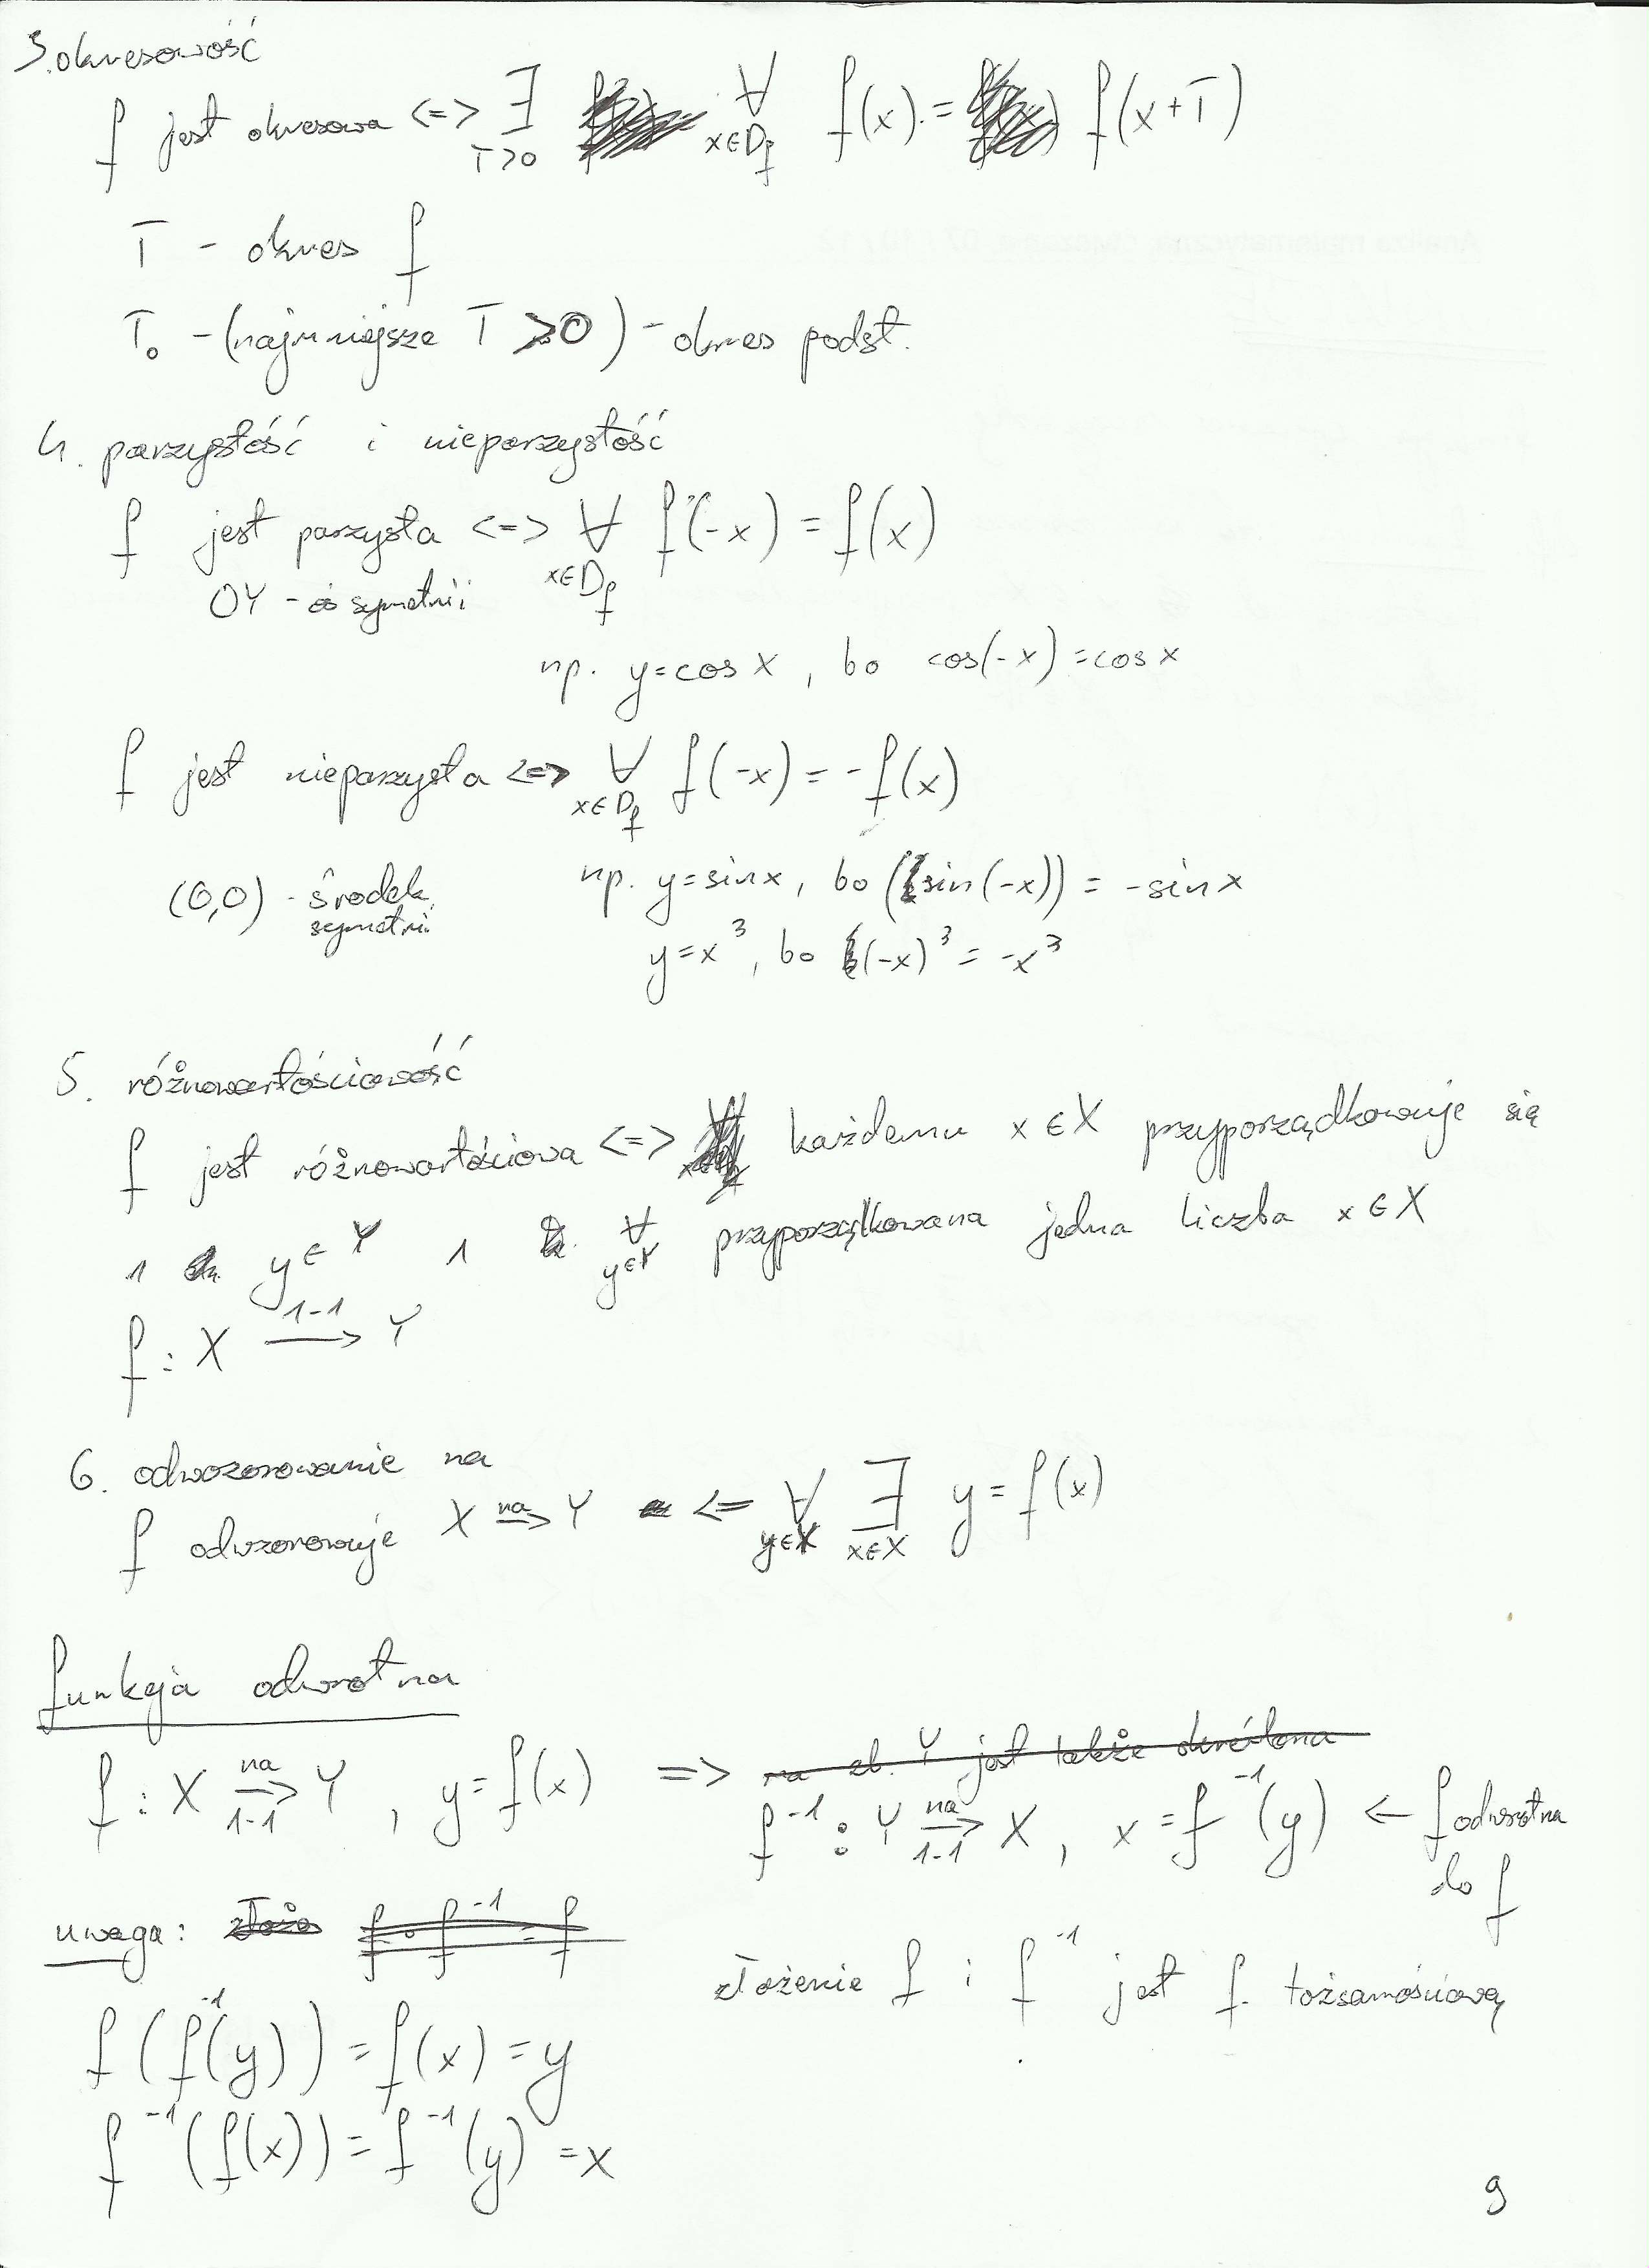 3. okresowość
f jest okresowa <=> ∃ T>0 ∀ x∈D_f f(x) = f(x+T)
T - okres f
T₀ - (najmniejsze T > 0) - okres podst.
4. parzystość i nieparzystość
f jest parzysta <=> ∀ x∈D_f f(-x) = f(x)
OY - oś symetrii
np. y=cos x, bo cos(-x)=cos x
f jest nieparzysta <=> ∀ x∈D_f f(-x) = -f(x)
(0,0) - środek symetrii
np. y=sin x, bo (sin(-x)) = -sin x
y=x³, bo (-x)³ = -x³
5. różnowartościowość
f jest różnowartościowa <=> każdemu x∈X przyporządkowuje się
1 y∈Y 1 ∀ y∈Y przyporządkowana jedna liczba x∈X
f: X 1-1→ Y
6. odwzorowanie na
f odwzorowuje X na→ Y <= ∀ y∈Y ∃ x∈X y=f(x)
funkcja odwrotna
na zb. Y jest także określona
f: X na→ 1-1 Y, y=f(x) => f⁻¹: Y na→ 1-1 X, x=f⁻¹(y) ← f odwrotna
do f
uwaga: f · f⁻¹ = f
złożenie f i f⁻¹ jest f. tożsamościową
f(f⁻¹(y)) = f(x) = y
f⁻¹(f(x)) = f⁻¹(y) = x
9